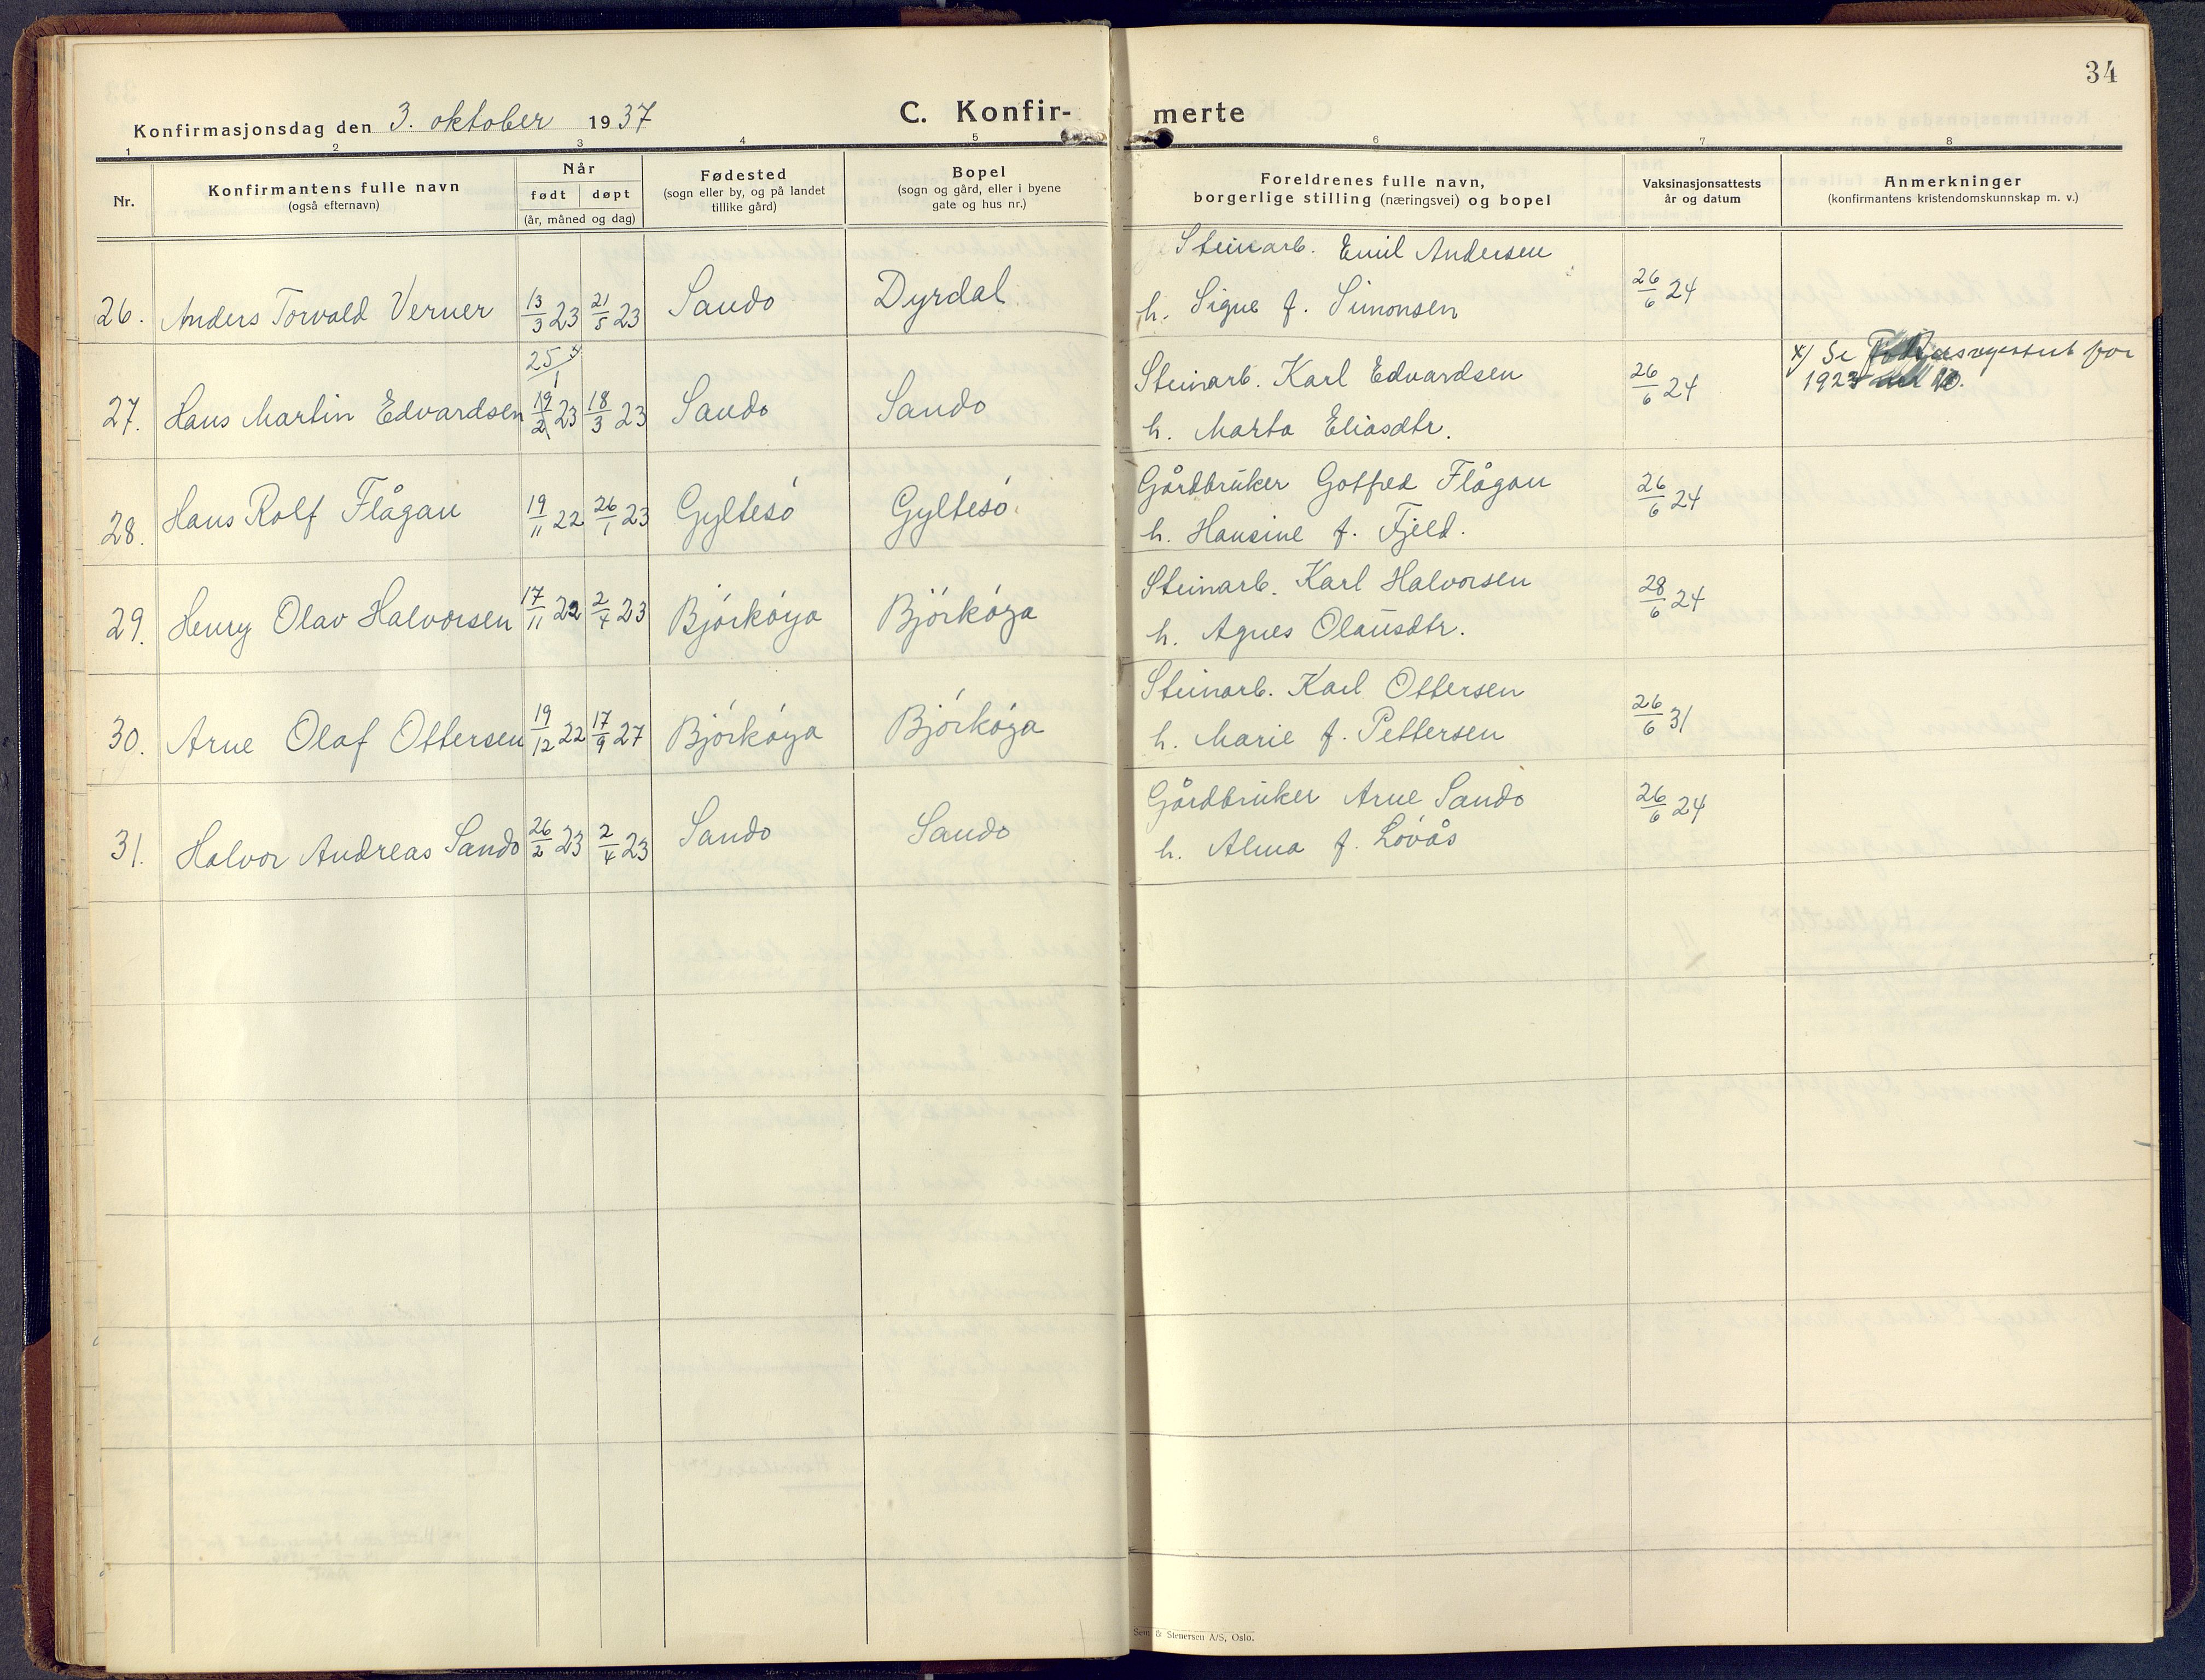 34
Konfirmasjonsdag den 3. oktober 1937
C. Konfir- merte
1 2 3 4 5 6 7 8
Nr.
Konfirmantens fulle navn
(også efternavn)
Når
født døpt
(år, måned og dag)
Fødested
(sogn eller by, og på landet
tillike gård)
Bopel
(sogn og gård, eller i byene
gate og hus nr.)
Foreldrenes fulle navn,
borgerlige stilling (næringsvei) og bopel
Vaksinasjonsattests
år og datum
Anmerkninger
(konfirmantens kristendomskunnskap m. v.)
Steinarb. Emil Andersen
26. Anders Torvald Verner 13/3 23 21/5 23 Sando Dyrdal h. Signe f. Simonsen 26/6 24
25/1 x)
27. Hans Martin Edvardsen 19/2 23 18/3 23 Sando Sando Steinarb. Karl Edvardsen 26/6 24 x) Se Fødselsregisteret for
h. Marta Eliasdtr. 1923
28. Hans Rolf Flågan 19/11 22 26/1 23 Gyltesö Gyltesö Gårdbruker Gotfred Flågan 26/6 24
h. Hansine f. Fjeld.
29. Henry Olav Halvorsen 17/11 22 2/4 23 Björköya Björköya Steinarb. Karl Halvorsen 28/6 24
h. Agnes Olausdtr.
30. Arne Olaf Ottersen 19/12 22 17/9 27 Björköya Björköya Steinarb. Karl Ottersen 26/6 31
h. Marie f. Pettersen
31. Halvor Andreas Sando 26/2 23 2/4 23 Sando Sando Gårdbruker Arne Sando 26/6 24
h. Alma f. Lövås
Sem & Stenersen A/S, Oslo.